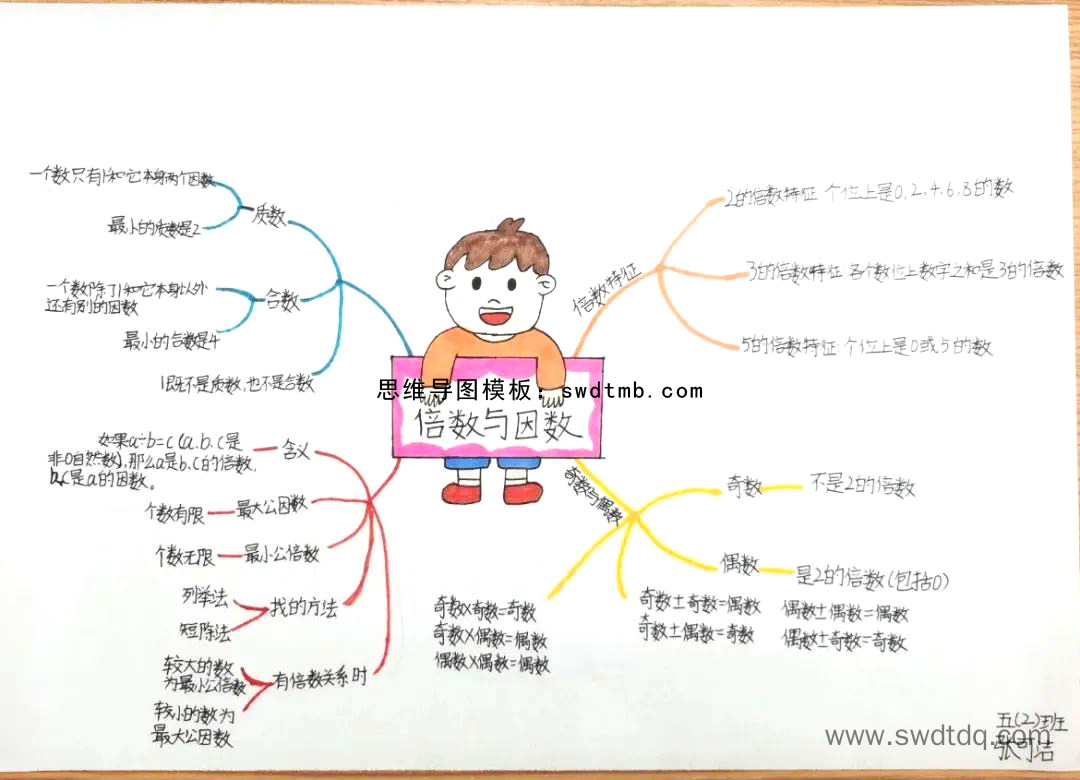 一个数只有1和它本身两个因数
质数
最小的质数是2
一个数除了1和它本身以外
还有别的因数
合数
最小的合数是4
1既不是质数,也不是合数
倍数特征
2的倍数特征 个位上是0,2,4,6,8的数
3的倍数特征 各个数位上数字之和是3的倍数
5的倍数特征 个位上是0或5的数
思维导图模板：swdtmb.com
倍数与因数
如果a÷b=c(a.b.c是
非0自然数),那么a是b.c的倍数,
b,c是a的因数。
含义
个数有限
最大公因数
个数无限
最小公倍数
列举法
短除法
找的方法
较大的数
为最小公倍数
有倍数关系时
较小的数为
最大公因数
奇数与偶数
奇数
不是2的倍数
偶数
是2的倍数(包括0)
奇数×奇数=奇数
奇数×偶数=偶数
偶数×偶数=偶数
奇数±奇数=偶数
奇数±偶数=奇数
偶数±偶数=偶数
偶数±奇数=奇数
五(2)班
www.swdtdq.com
张可洁